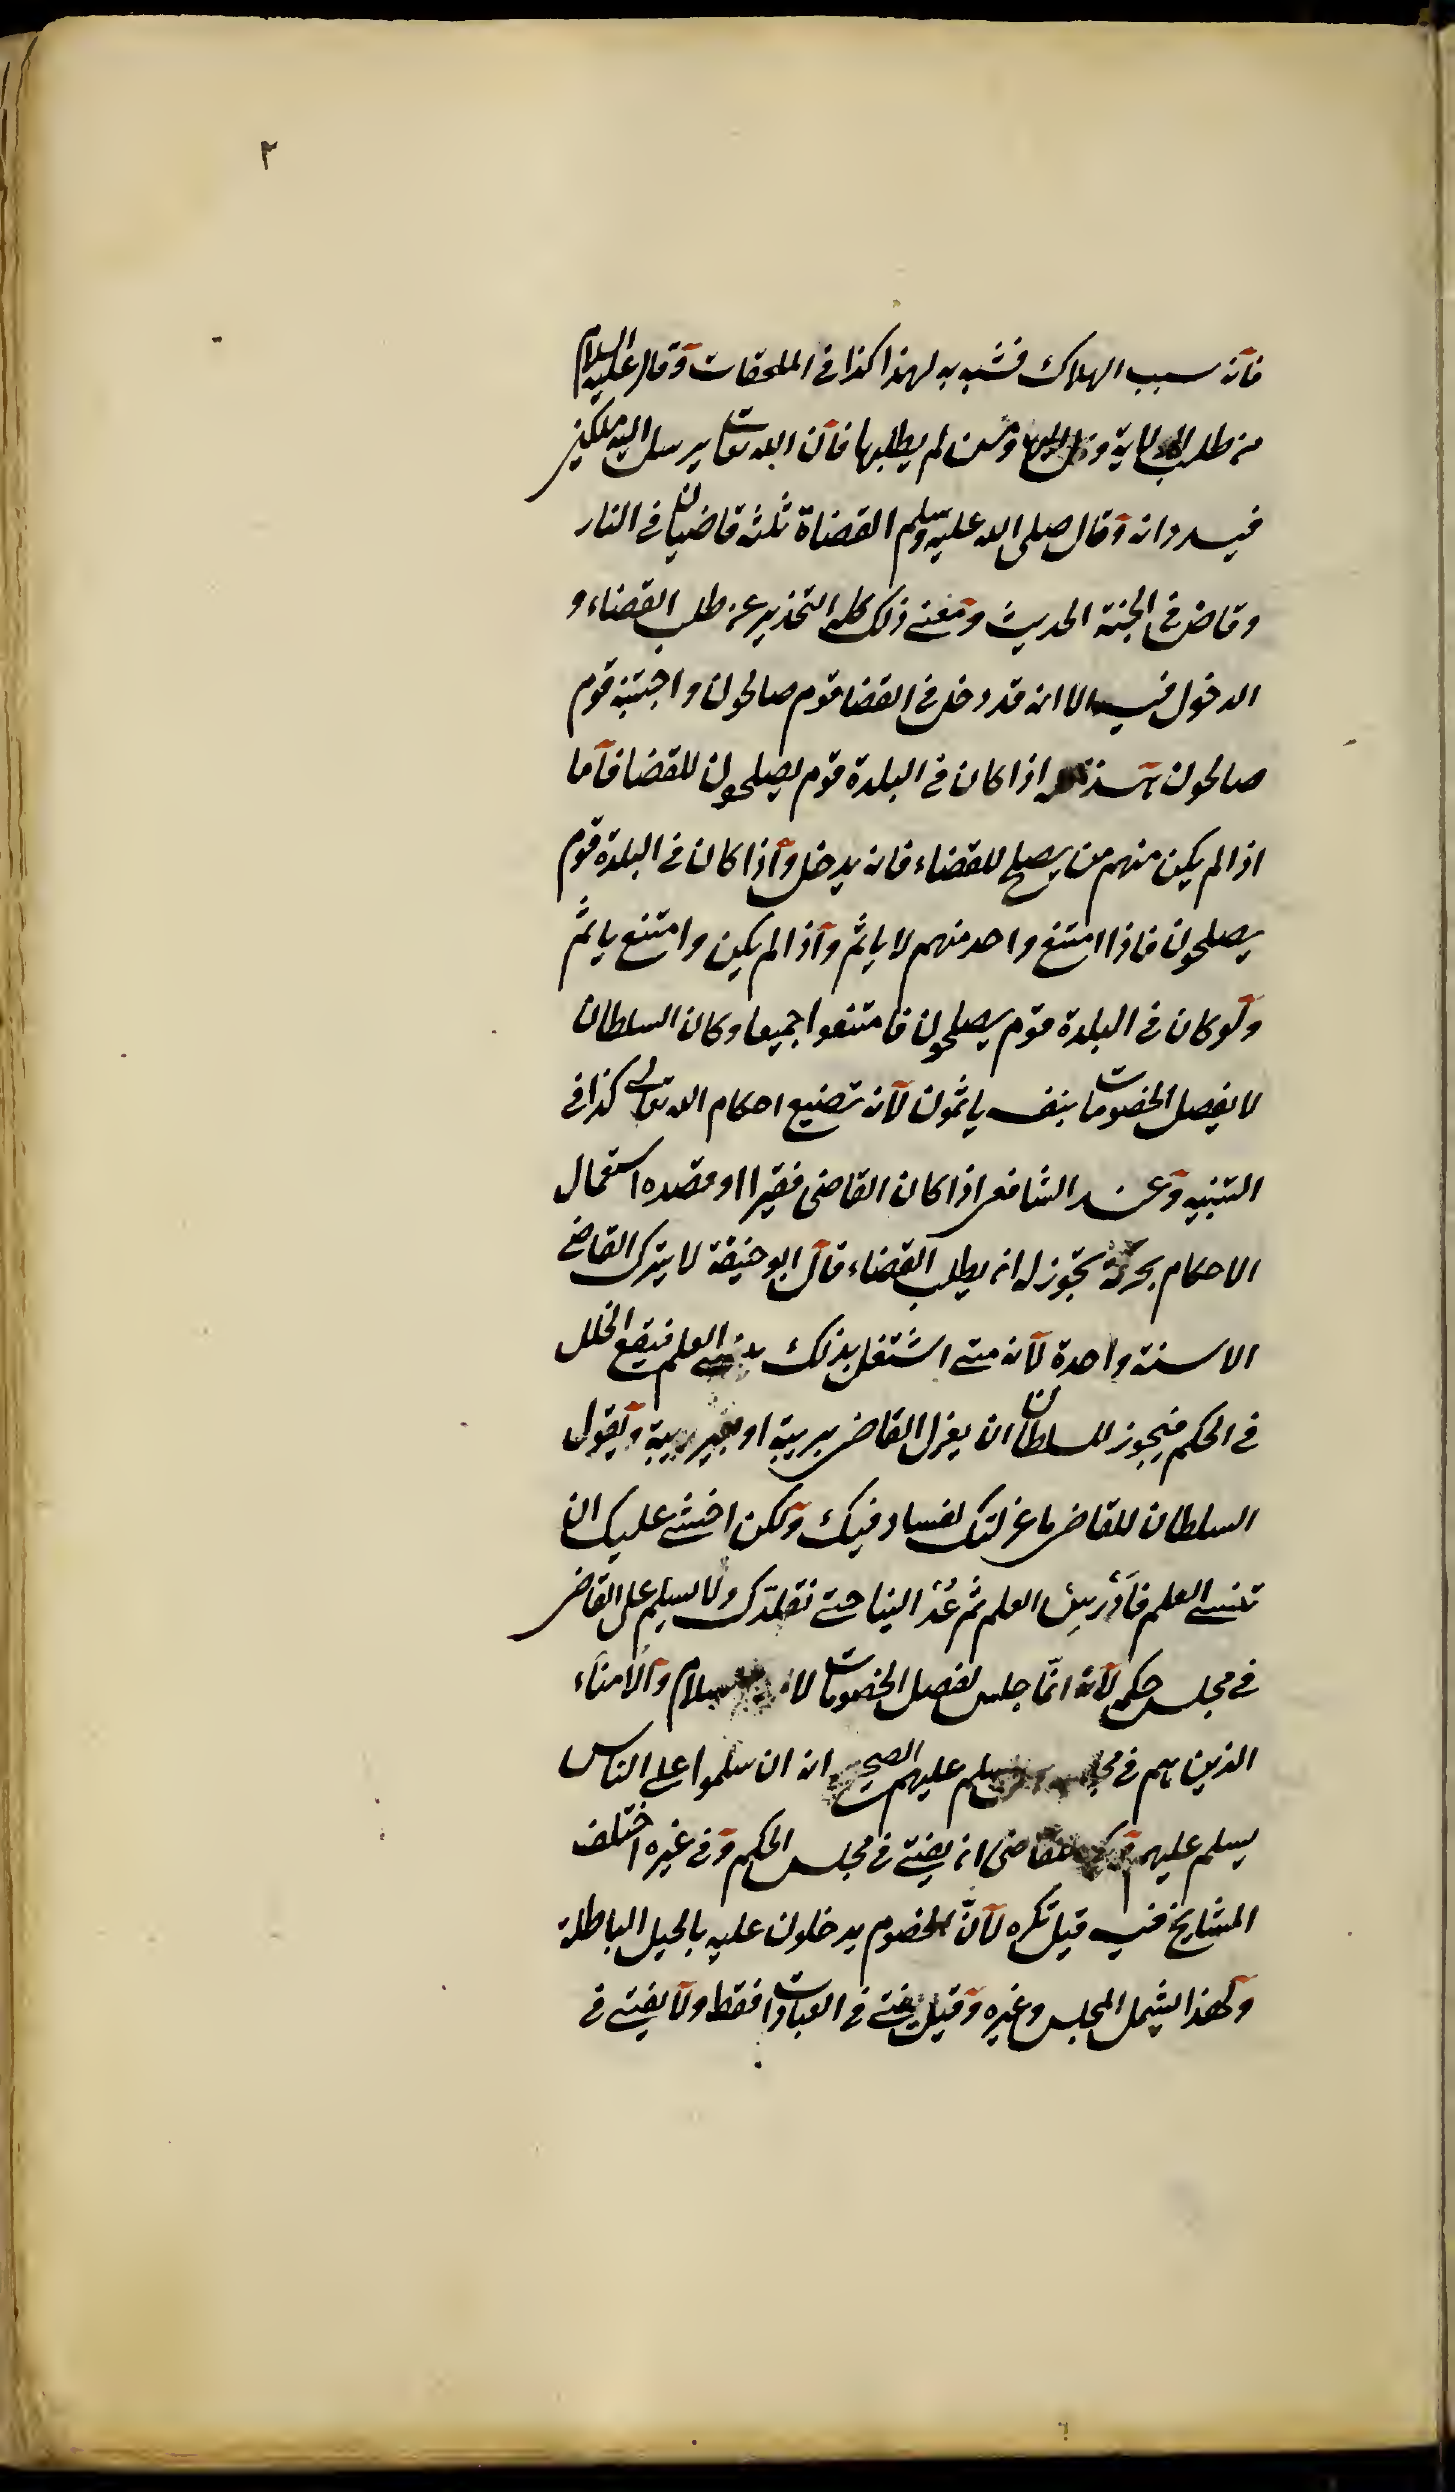 ٢
فانه سبب الهلاك فشبه به لهذا كذا في الملحقات وقال عليه السلام
من طلب الولاية وكل اليها ومن لم يطلبها فان الله تعا يرسل اليه ملكين
فيسددانه وقال صلى الله عليه وسلم القضاة ثلثه قاضيان في النار
وقاض في الجنة الحديث ومعنى ذلك كله التحذير عن طلب القضاء و
الدخول فيه الا انه قد دخل في القضا قوم صالحون واجتنبه قوم
صالحون هذا اذا كان في البلدة قوم يصلحون للقضا فاما
اذا لم يكن منهم من يصلح للقضاء فانه يدخل واذا كان في البلدة قوم
يصلحون فاذا امتنع واحد منهم لا ياثم واذا لم يكن وامتنع ياثم
ولو كان في البلدة قوم يصلحون فامتنعوا جميعا وكان السلطان
لا يفصل الخصومات بنفسه ياثمون لانه تضييع احكام الله تعالى كذا في
التنبيه وعند الشافعى اذا كان القاضى فقيرا او قصده استعمال
الاحكام بحركة يجوز له ان يطلب القضاء قال ابو حنيفة لا يترك القاضى
الا سنة واحدة لانه متى اشتغل بذلك ينسى العلم فيقع الخلل
في الحكم فيجوز للسلطان ان يعزل القاضى بريبة او بغير ريبة ويقول
السلطان للقاضى ما عزلتك لفساد فيك ولكن اخشى عليك ان
تنسى العلم فادرس العلم ثم عد الينا حتى نقلدك ولا يسلم على القاضى
في مجلس حكمه لانه انما جلس لفصل الخصومات لا السلام والامناء
الذين هم في يسلم عليهم الصحيح انه ان سلموا على الناس
يسلم عليهم للقاضى ان يفتى في مجلس الحكم وفي غيره اختلف
المشايخ فيه قيل تكره لان الخصوم يدخلون عليه بالحيل الباطلة
ولهذا يشمل المجلس وغيره وقيل يفتى في العبادات فقط ولا يفتى في